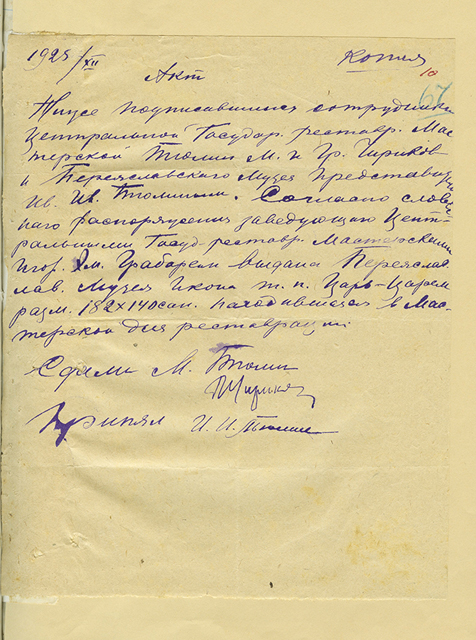 1925/XII
Копия
10
67
Акт
Ниже подписавшиеся сотрудники
Центральной Государ. реставр. Мас-
терской Тюлин М. и Гр. Чириков
и Переяславского Музея Представи
Ив. Ив. Тюлиным. Согласно слове
наго распоряжения заведующаго Цент-
ральными Госуд. реставр. Мастерскими
Игор. Эм. Грабарем выдана Переяслав
лав. Музея Икона т. п. Царь-Царем
разм. 182х140 сан. находившаяся в Мас-
терской для реставрации.
Сдали М. Тюлин
Чириков
Принял И. И. Тюлин